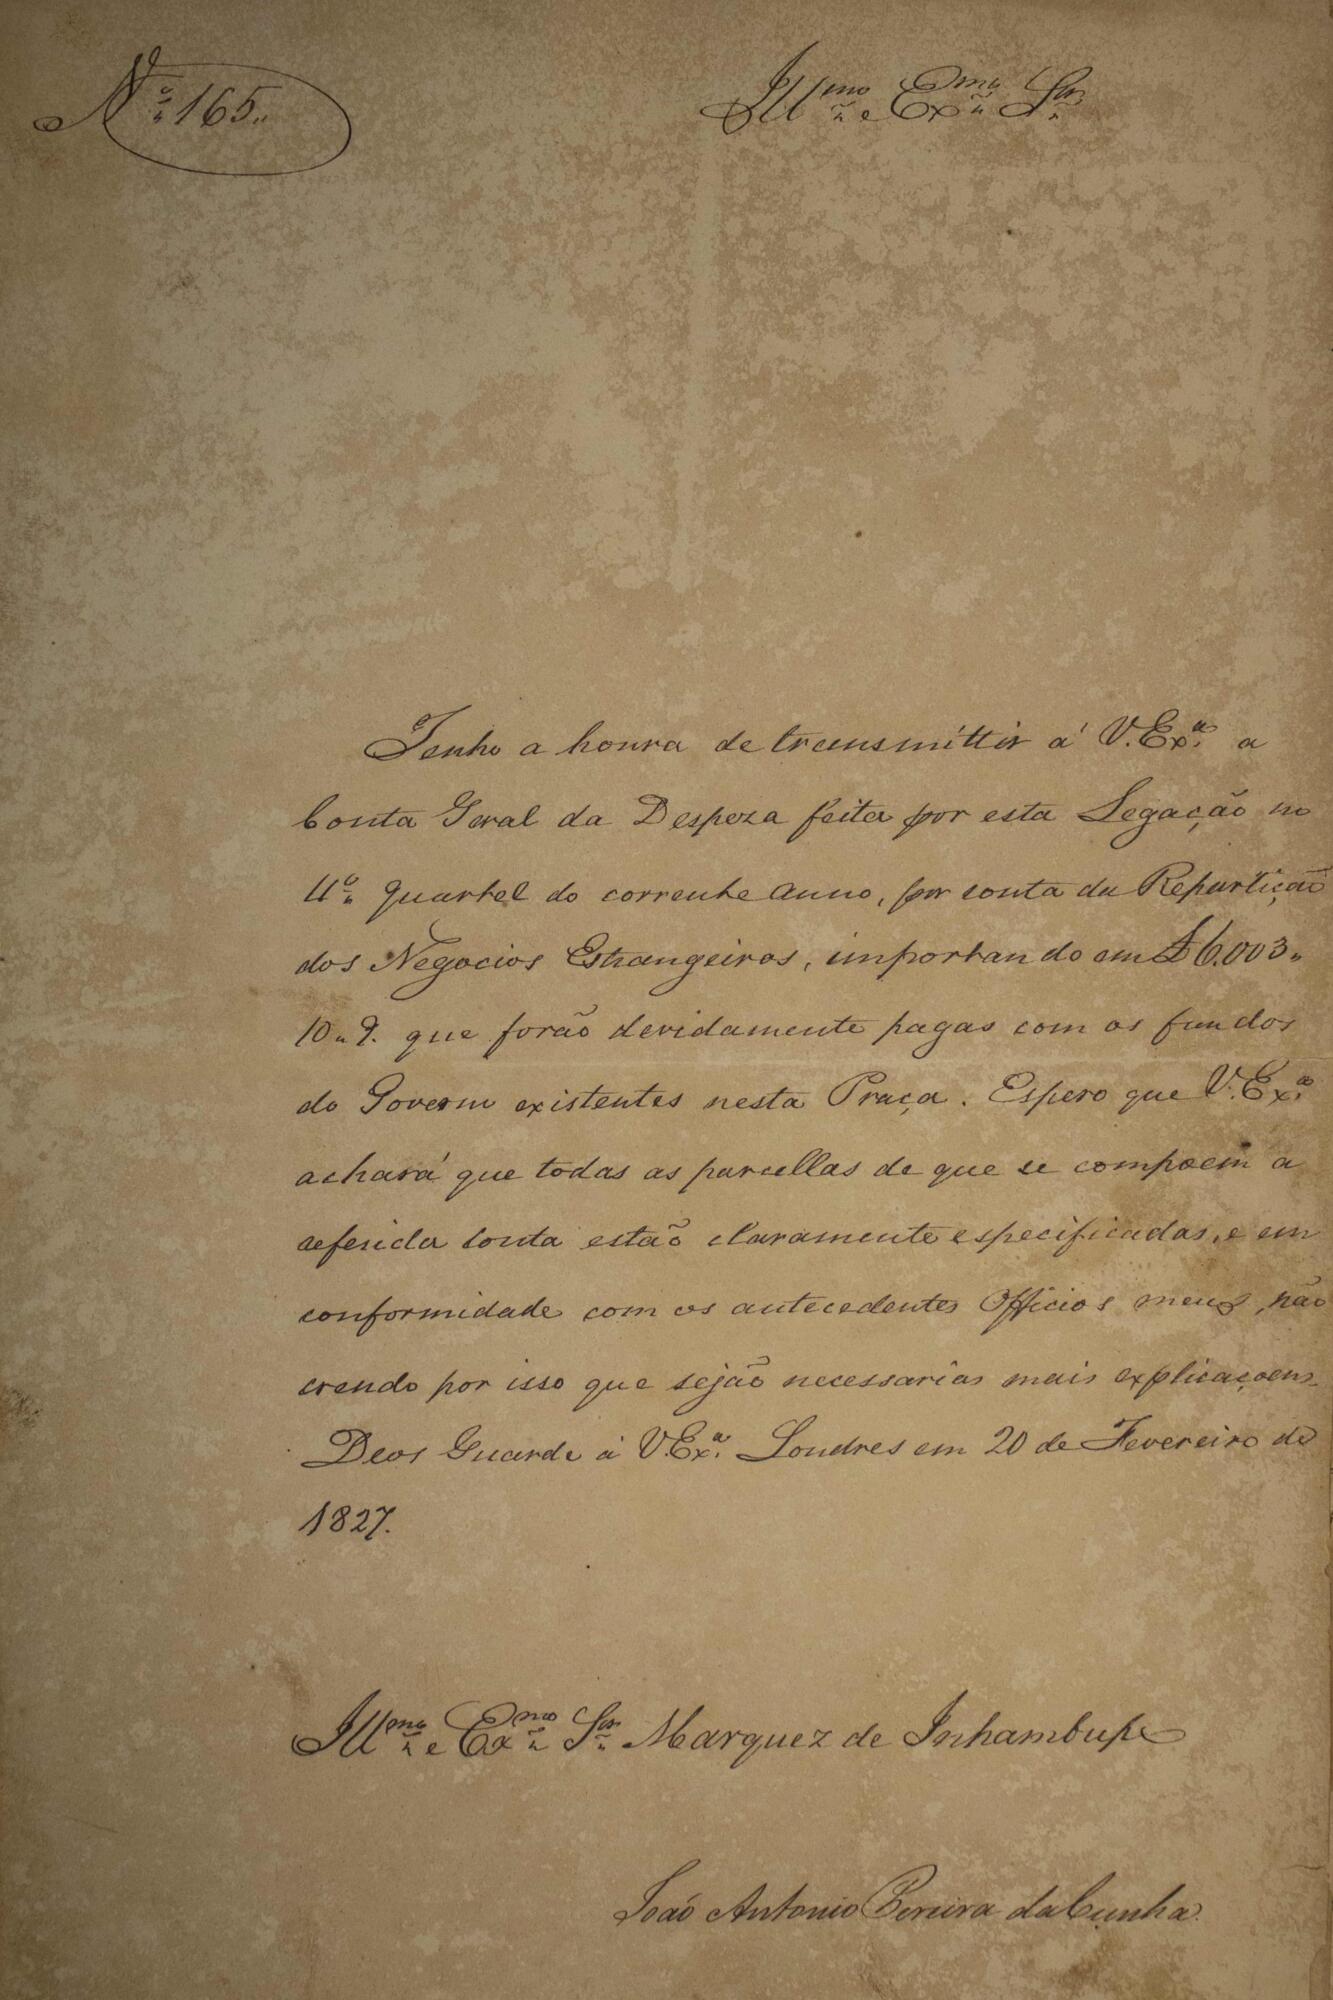 Nº 165.
Illmo e Exmo Snr
Tenho a honra de transmittir á V. Exª. a
Conta Geral da Despeza feita por esta Legação no
4º quartel do corrente anno, por conta da Repartição
dos Negocios Estrangeiros, importando em £ 6.003"
10"9. que forão devidamente pagas com os fundos
do Governo existentes nesta Praça. Espero que V. Exª.
achará que todas as parcellas de que se compoem a
referida Conta estão claramente especificadas, e em
conformidade com os antecedentes Officios meus, não
crendo por isso que sejão necessarias mais explicaçoens.
Deos Guarde á V. Exª. Londres em 20 de Fevereiro de
1827.
Illmo e Exmo Snr Marquez de Inhambupe
João Antonio Pereira da Cunha